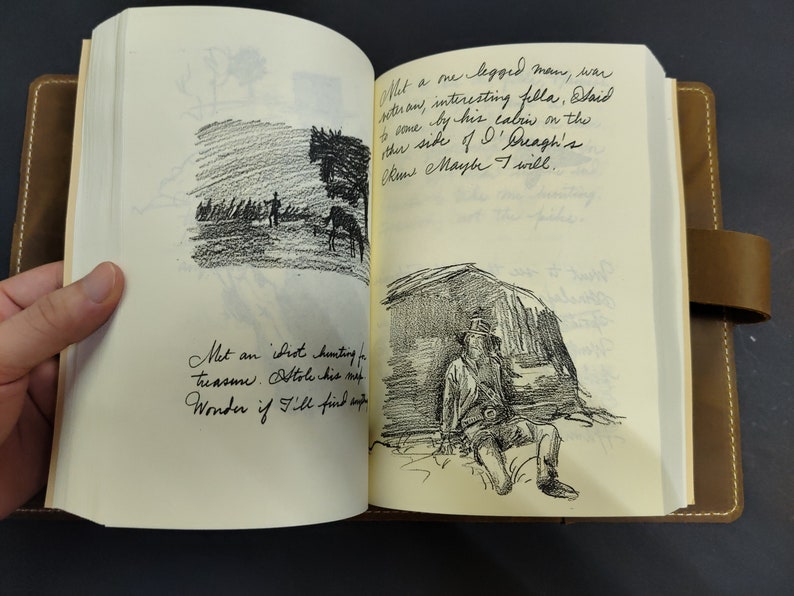 Met an idiot hunting for
treasure. Stole his map.
Wonder if I'll find anything
Met a one legged man, war
veteran, interesting fella. Said
to come by his cabin on the
other side of O'Creagh's
Run. Maybe I will.